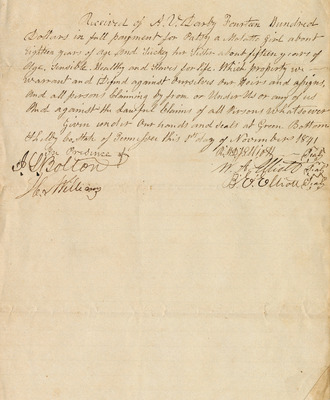 Received of A. V. Darby Fourteen Hundred
Dollars in full payment for Patsy a Malatto Girl about
Eighteen years of age And Luckey her Sister about fifteen years of
Age, Sensible Healthy and Slaves for life. Which property we
Warrant and Defend against Ourselves Our heirs and assigns,
And all persons claiming by from or Under Us or any of us
And against the Lawful Claims of all Persons whatsoever
Given under Our hands and Seals at Green Bottom
State of Tennessee this 1st day of November 1841
In Presence of
Elliott Seal
Bolton
W. Elliott Seal
Williams
Elliott Seal